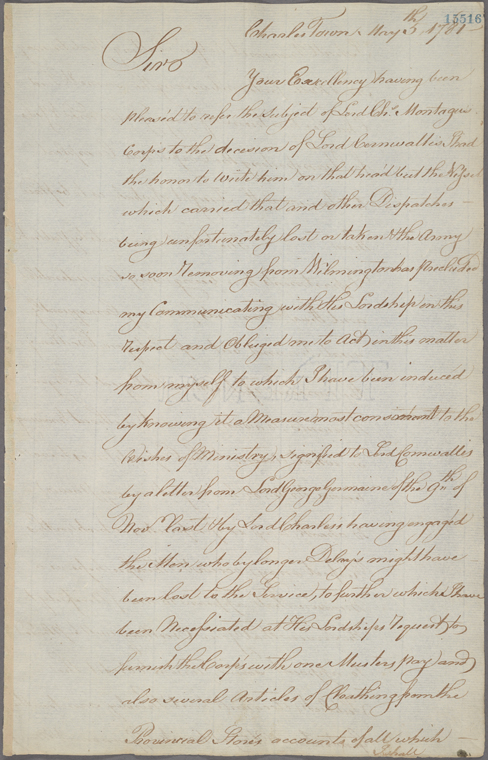 15516
Charles Town May 3th 1781
Sir
Your Excellency having been
pleas'd to refer the subject of Lord Chs. Montagus
Corps to the decision of Lord Cornwallis I had
the honor to write him on that head but the Vessel
which carried that and other Dispatches
being unfortunately lost or taken & the Army
so soon Removing from Wilmington has Precluded
my Communicating with His Lordship in this
respect and Obliged me to Act in this matter
from myself to which I have been induced
by knowing it a Measure most consonant to the
Wishes of Ministry, signified to Lord Cornwallis
by a letter from Lord George Germaine of the 9th of
Nov. last & by Lord Charles's having engag'd
the Men who by longer Delays might have
been lost to the Service, to further which I have
been Necessiated at His Lordships request to
furnish the Corps with one Musters pay and
also several Articles of Cloathing from the
Provincial Stores accounts of all which
I shall